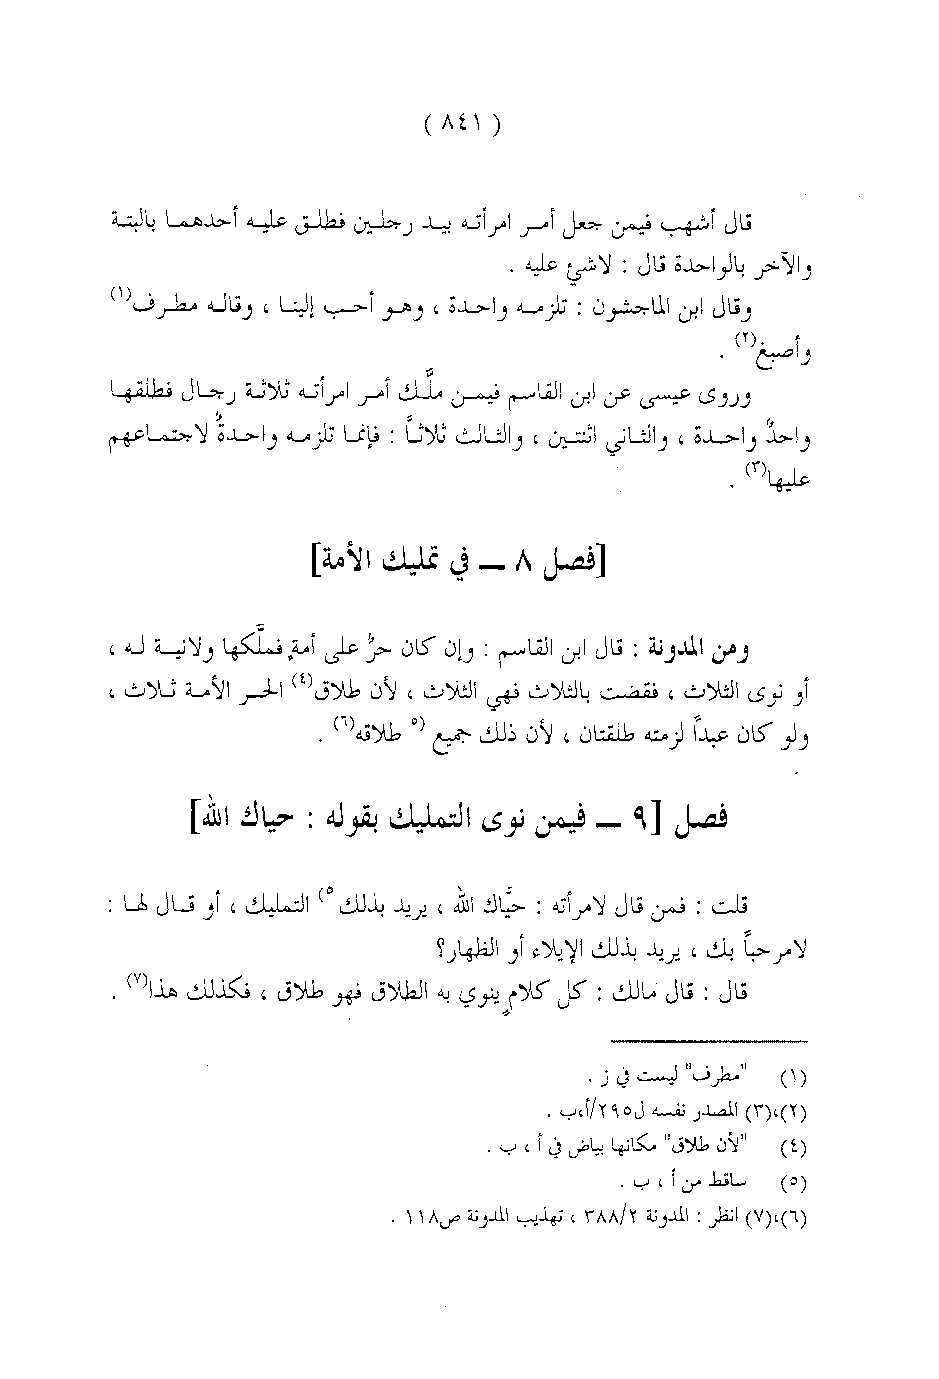 ( ٨٤١ )
قال أشهب فيمن جعل أمر امرأته بيد رجلين فطلق عليه أحدهما بالبتة
والآخر بالواحدة قال : لاشئ عليه .
وقال ابن الماجشون : تلزمه واحدة ، وهو أحب إلينا ، وقاله مطرف(١)
وأصبغ(٢) .
وروى عيسى عن ابن القاسم فيمن ملَّك أمر امرأته ثلاثة رجال فطلقها
واحدٌ واحدة ، والثاني اثنتين ، والثالث ثلاثاً : فإنما تلزمه واحدةٌ لاجتماعهم
عليها(٣) .
[فصل ٨ ــ في تمليك الأمة]
ومن المدونة : قال ابن القاسم : وإن كان حرٌّ على أمةٍ فملَّكها ولانية له ،
أو نوى الثلاث ، فقضت بالثلاث فهي الثلاث ، لأن طلاق(٤) الحر الأمة ثلاث ،
ولو كان عبداً لزمته طلقتان ، لأن ذلك جميع (٥ طلاقه(٦) .
فصل [٩ ــ فيمن نوى التمليك بقوله : حياك الله]
قلت : فمن قال لامرأته : حيَّاك الله ، يريد بذلك ٥) التمليك ، أو قال لها :
لامرحباً بك ، يريد بذلك الإيلاء أو الظهار؟
قال : قال مالك : كل كلامٍ ينوي به الطلاق فهو طلاق ، فكذلك هذا(٧) .
(١) "مطرف" ليست في ز .
(٢)،(٣) المصدر نفسه ل٢٩٥/أ،ب .
(٤) "لأن طلاق" مكانها بياض في أ ، ب .
(٥) ساقط من أ ، ب .
(٦)،(٧) انظر : المدونة ٣٨٨/٢ ، تهذيب المدونة ص١١٨ .